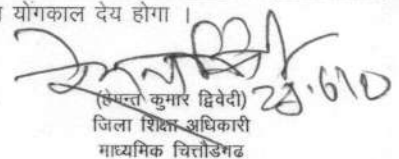 योगकाल देय होगा ।
(हेमन्त कुमार द्विवेदी)
जिला शिक्षा अधिकारी
माध्यमिक चित्तौडगढ